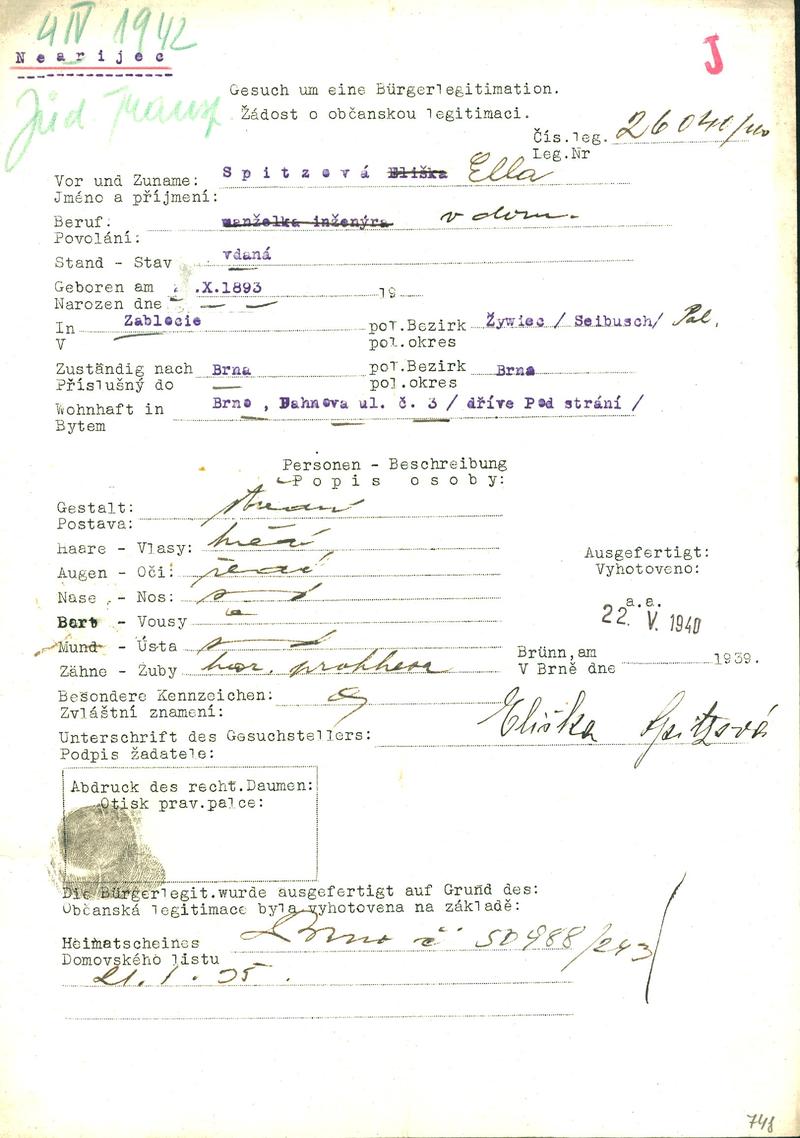 4 IV 1942
Nearijec
J
Jüd. Transp
Gesuch um eine Bürgerlegitimation.
Žádost o občanskou legitimaci.
Čís.leg. 26040/40
Leg.Nr
Vor und Zuname: Spitzová Eliška Ella
Jméno a příjmení:
Beruf: manželka inženýra v dom.
Povolání:
Stand - Stav vdaná
Geboren am .X.1893 19
Narozen dne
In Zablocie pol.Bezirk Żywiec / Seibusch/ Pol.
V pol.okres
Zuständig nach Brna pol.Bezirk Brna
Příslušný do pol.okres
Wohnhaft in Brno , Dahnova ul. č. 3 / dříve Pod strání /
Bytem
Personen - Beschreibung
Popis osoby:
Gestalt: střední
Postava:
Haare - Vlasy: hnědé
Augen - Oči: šedé
Nase - Nos:
Bart - Vousy
Mund - Ústa
Zähne - Zuby
Ausgefertigt:
Vyhotoveno:
a.a.
22. V. 1940
Brünn,am
V Brně dne 1939.
Besondere Kennzeichen:
Zvláštní znamení:
Unterschrift des Gesuchstellers: Eliška Spitzová
Podpis žadatele:
Abdruck des recht.Daumen:
Otisk prav.palce:
Die Bürgerlegit.wurde ausgefertigt auf Grund des:
Občanská legitimace byla vyhotovena na základě:
Heimatscheines Brno č 50988/243
Domovského listu
21. 1. 35.
748